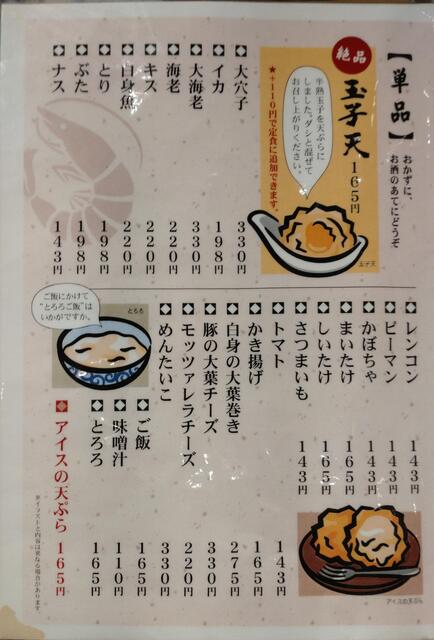 【単品】
おかずに、
お酒のあてにどうぞ
絶品
玉子天 165円
半熟玉子を天ぷらに
しました。ダシと混ぜて
お召し上がりください。
★+110円で定食に追加できます。
玉子天
大穴子 330円
イカ 198円
大海老 330円
海老 220円
キス 220円
白身魚 220円
とり 198円
ぶた 198円
ナス 143円
レンコン 143円
ピーマン 143円
かぼちゃ 143円
まいたけ 165円
しいたけ 165円
さつまいも 143円
トマト 143円
かき揚げ 165円
白身の大葉巻き 275円
豚の大葉チーズ 330円
モッツァレラチーズ 220円
めんたいこ 330円
ご飯 165円
味噌汁 110円
とろろ 165円
アイスの天ぷら 165円
ご飯にかけて
"とろろご飯"は
いかがですか。
とろろ
アイスの天ぷら
※イラストと内容は異なる場合があります。